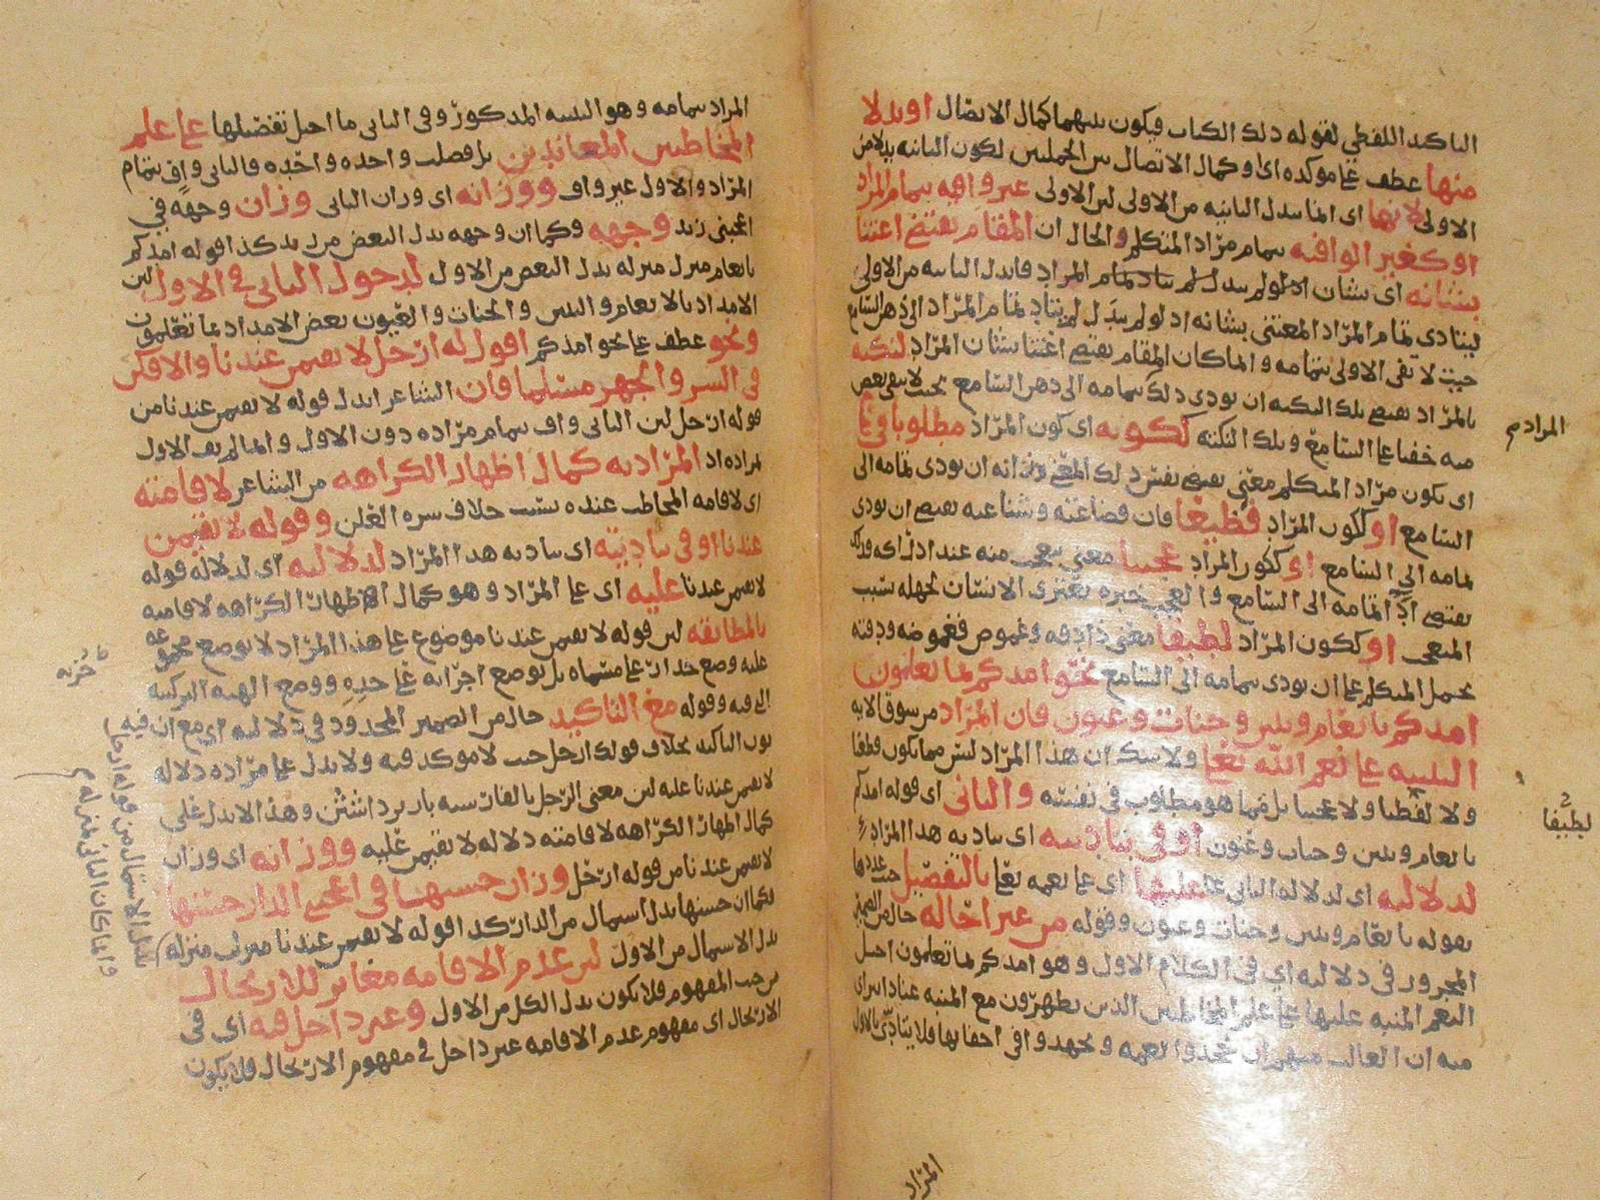 التاكيد اللفظي لقوله ذلك الكتاب فيكون بينهما كمال الاتصال او بدلا
منها عطف على موكده اى وكمال الاتصال بين الجملتين لكون الثانيه بدلا من
الاولى لانها اى انما تبدل الثانيه من الاولى لان الاولى غير وافيه بتمام المراد
او كغير الوافيه بتمام مراد المتكلم والحال ان المقام يقتضى اعتنا
بشانه اى بشان المراد فابدل الثانيه من الاولى
ليتادى تمام المراد المعتنى بشانه اذ لو لم يبدل لم يتاد تمام المراد الى ذهن السامع
حيث لا تفى الاولى بتمامه وانما كان المقام يقتضى اعتنا بشان المراد لنكته
بالمراد يقتضى تلك النكته ان يودى ذلك بتمامه الى ذهن السامع بحيث لا يبقى بعض
منه خفيا على السامع وتلك النكته ككونه اى كون المراد مطلوبا فى
اى يكون مراد المتكلم معنى يقتضى نفس ذلك المعنى ان يودى تمامه الى
السامع او ككون المراد فظيعا فان فضاعته وشناعته يقتضى ان يودى
تمامه الى السامع او ككون المراد عجيبا معنى يتعجب منه عند ادراكه
يقتضى القا تمامه الى السامع والعجب حيره تعترى الانسان لجهله بسبب
المتعجب او ككون المراد لطيفا معنى ذا دقه وغموض فغموضه ودقته
يحمل المتكلم على ان يودى بتمامه الى السامع نحو امدكم بما تعلمون
امدكم بانعام وبنين وجنات وعيون فان المراد من سوق الايه
التنبيه على نعم الله تعالى ولا شك ان هذا المراد ليس مما يكون فظيعا
ولا لطيفا ولا عجيبا بل مما هو مطلوب فى نفسه والثانى اى قوله امدكم
بانعام وبنين وجنات وعيون او فى بتاديته اى بتاديه هذا المراد
لدلالته اى لدلاله الثانى على عليها اى على نعمه تعالى بالتفصيل حيث عددها
بقوله بانعام وبنين وجنات وعيون وقوله من غير احاله حال من الضمير
المجرور فى دلالته اى فى الكلام الاول وهو امدكم بما تعلمون احيل
النعم المنبه عليها على علم المخاطبين الذين يظهرون مع المنبه عنادا
منه ان الغالب منهم ان يجحدوا النعمه ويجهدوا فى اخفائها فلا يتادى بالاول
المراد م
لطيفا
المراد
المراد بتمامه وهو التنبيه المذكور وفى الثانى ما احيل تفصيلها على علم
المخاطبين المعاندين بل فصلت واحده واحده فالثانى واف بتمام
المراد والاول غير واف ووزانه اى وزان الثانى وزان وجهه فى
اعجبنى زيد وجهه وكما ان وجهه بدل البعض من زيد كذا قوله امدكم
بانعام منزل منزله بدل البعض من الاول لدخول الثانى فى الاول لان
الامداد بالانعام والبنين والجنات والعيون بعض الامداد بما تعلمون
ونحو عطف على نحو امدكم اقول له ارحل لا تقيمن عندنا والا فكن
فى السر والجهر مسلما فان الشاعر ابدل قوله لا تقيمن عندنا من
قوله ارحل لان الثانى واف بتمام مراده دون الاول وانما لم يف الاول
بمراده اذ المراد به كمال اظهار الكراهه من الشاعر لاقامته
اى لاقامه المخاطب عنده بسبب خلاف سره العلن وقوله لا تقيمن
عندنا اوفى بتاديته اى بتاديه هذا المراد لدلالته اى لدلاله قوله
لا تقيمن عندنا عليه اى على المراد وهو كمال اظهار الكراهه لاقامته
بالمطابقه لان قوله لا تقيمن عندنا موضوع على هذا المراد لا بوضع
عليه وضع على مسماه بل بوضع اجزائه على حده ووضع الهيه التركيبيه
التى فيه وقوله مع التاكيد حال من الضمير المجرور فى دلالته اى مع ان فيه
نون التاكيد بخلاف قولك ارحل حيث لا موكد فيه ولا يدل على مراده دلاله
لا تقيمن عندنا عليه لان معنى الرحل بالفارسيه
كمال اظهار الكراهه لاقامته دلاله لا تقيمن عليه ووزانه اى وزان
لا تقيمن عندنا من قوله ارحل وزان حسنها فى اعجبنى الدار حسنها
فكما ان حسنها بدل اشتمال من الدار كذا قوله لا تقيمن عندنا منزل منزله
بدل الاشتمال من الاول لان عدم الاقامه مغاير للارتحال
من حيث المفهوم فلا يكون بدل الكل من الاول وغير داخل فيه اى فى
الارتحال اى مفهوم عدم الاقامه غير داخل فى مفهوم الارتحال فلا يكون
بدل الاشتمال من قوله ارحل
وانما كان الثانى بمنزله م